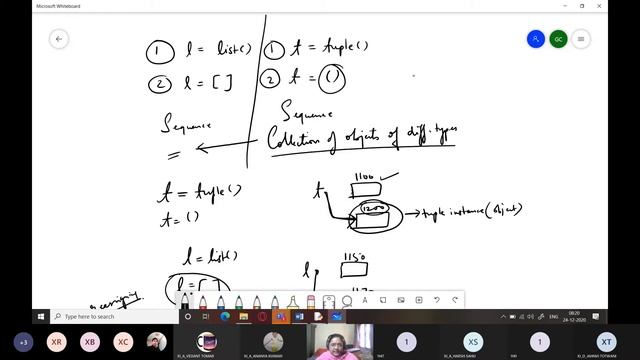 Microsoft Whiteboard
① l = list()
② l = [ ]
Sequence
① t = tuple()
② t = ()
Sequence
Collection of objects of diff. types
t = tuple()
t = ()
t
1100
1200
tuple instance (object)
l = list()
l = [ ]
l
1150
GC
Type here to search
08:20
24-12-2020
+3
XR
XB
XC
XI_A_VEDANT TOMAR
XI_A_ANANYA KUMARI
1
XS
1
XT